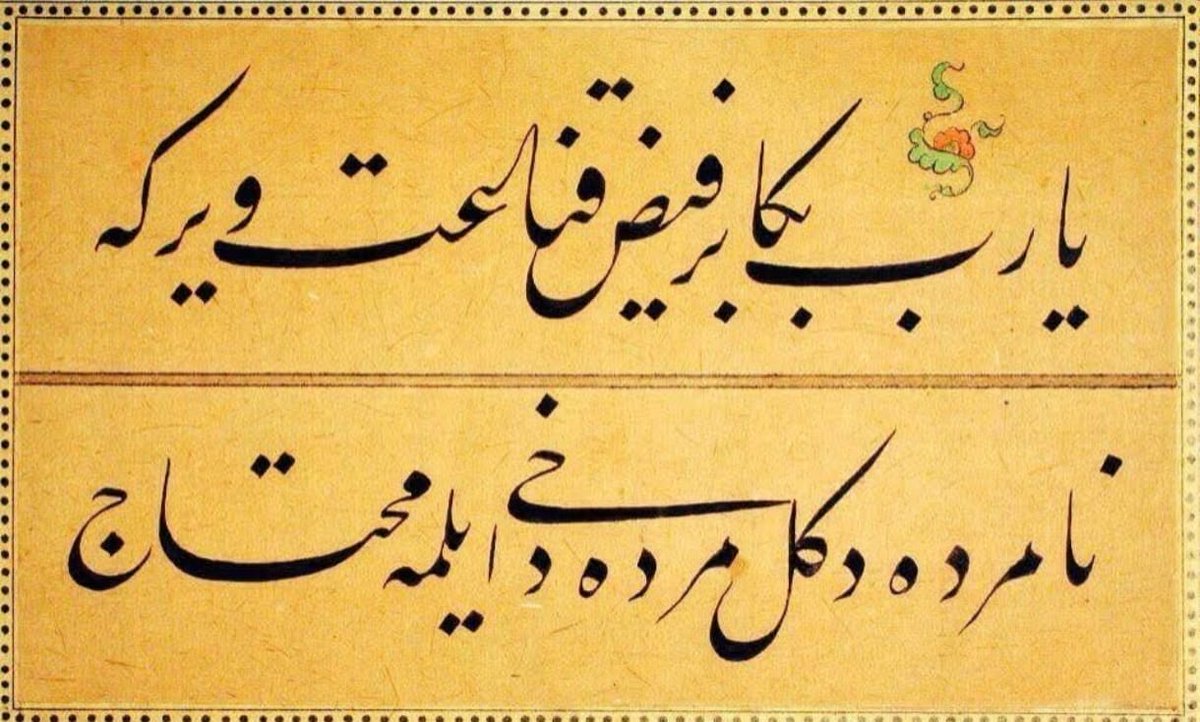 يا رب بكا بر فيض قناعت وير كه
نامرده دكل مرده دخى ايلمه محتاج